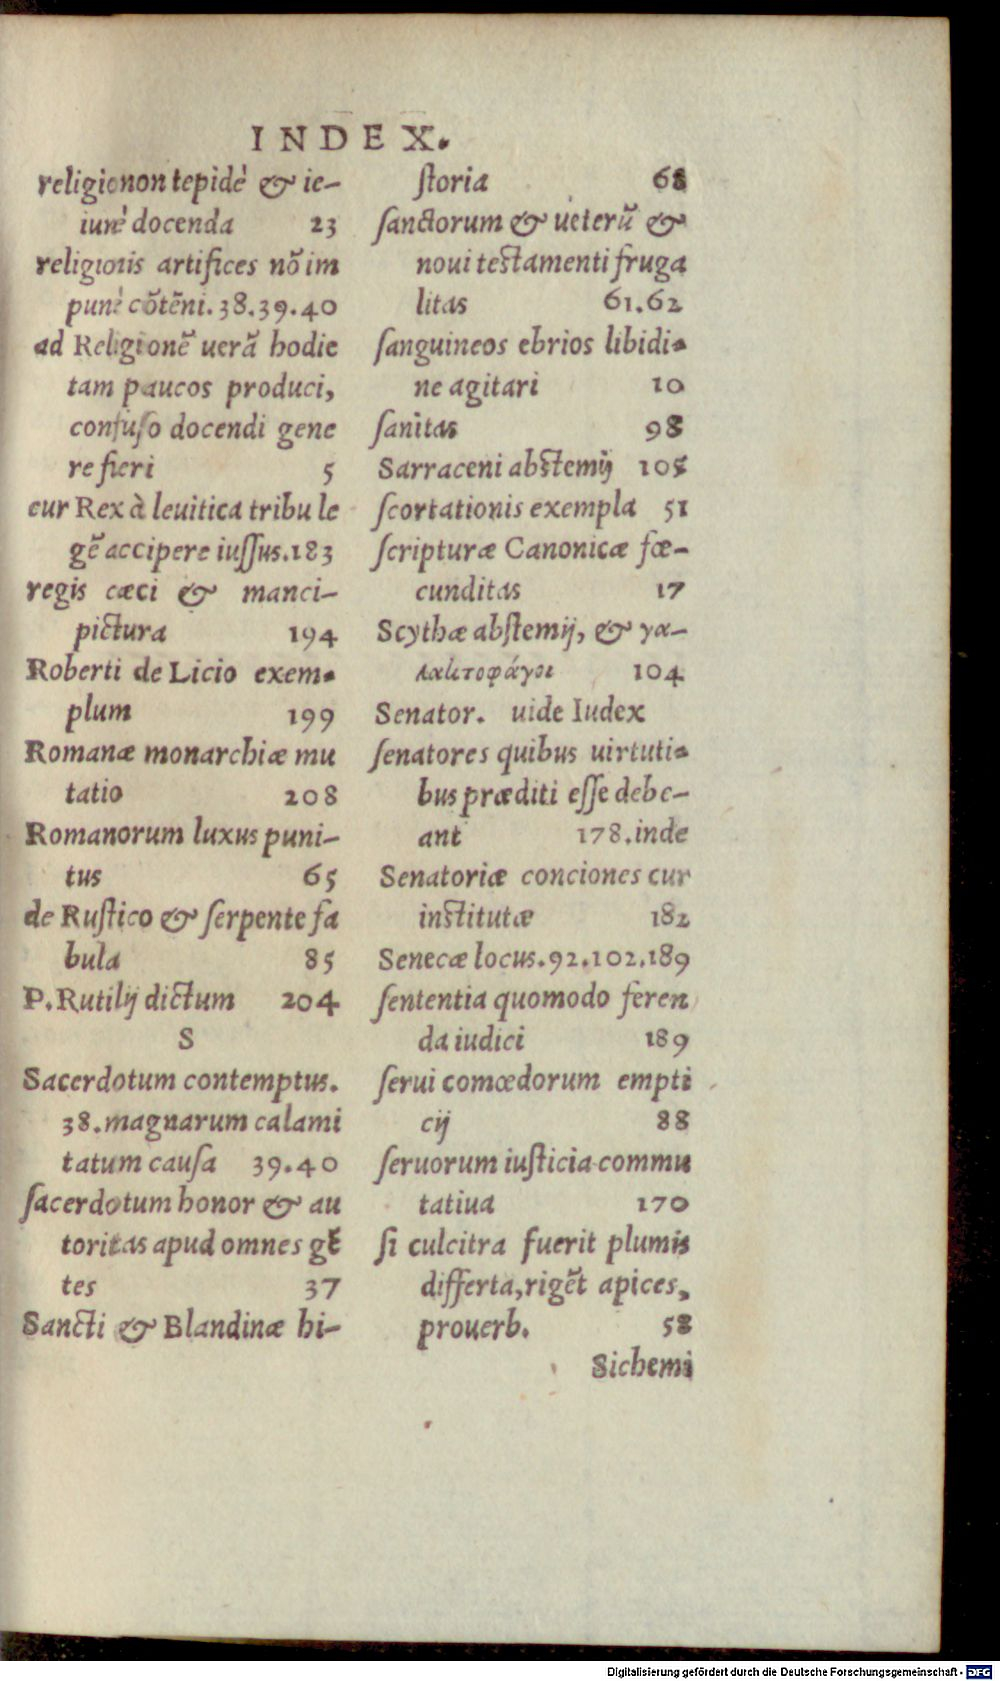 INDEX.
religionon tepidè & ie-
iunè docenda 23
religionis artifices nō im
punè cōtēni. 38.39.40
ad Religionē uerā hodie
tam paucos produci,
confuso docendi gene
re fieri 5
cur Rex à leuitica tribu le
gē accipere iussus. 183
regis cæci & manci-
pictura 194
Roberti de Licio exem-
plum 199
Romanæ monarchiæ mu
tatio 208
Romanorum luxus puni-
tus 65
de Rustico & serpente fa
bula 85
P. Rutilij dictum 204
S
Sacerdotum contemptus.
38. magnarum calami
tatum causa 39.40
sacerdotum honor & au
toritas apud omnes gē
tes 37
Sancti & Blandinæ hi-
storia 68
sanctorum & ueterū &
noui testamenti fruga
litas 61.62
sanguineos ebrios libidi-
ne agitari 10
sanitas 98
Sarraceni abstemij 105
scortationis exempla 51
scripturæ Canonicæ fœ-
cunditas 17
Scythæ abstemij, & γα-
λακτοφάγοι 104
Senator. uide Iudex
senatores quibus uirtuti-
bus præditi esse debe-
ant 178. inde
Senatoriæ conciones cur
institutæ 182
Senecæ locus. 92.102.189
sententia quomodo feren
da iudici 189
serui comœdorum empti
cij 88
seruorum iusticia commu
tatiua 170
si culcitra fuerit plumis
differta, rigēt apices,
prouerb. 58
Sichemi
Digitalisierung gefördert durch die Deutsche Forschungsgemeinschaft - DFG